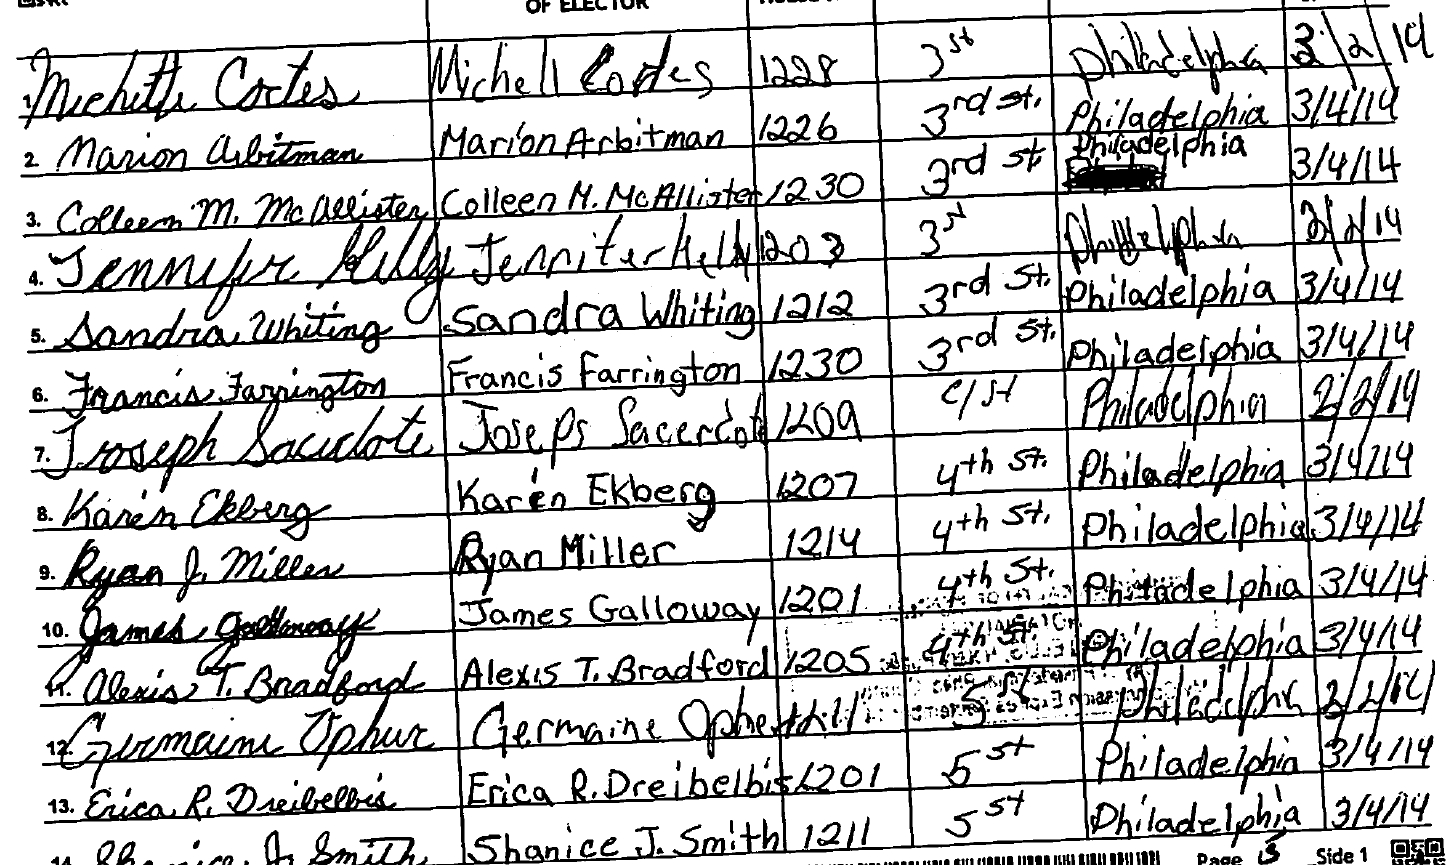 OF ELECTOR
1. Michelle Cortes Michell Cortes 1228 3st Philadelphia 3/2/14
2. Marion Arbitman Marion Arbitman 1226 3rd st. Philadelphia 3/4/14
3. Colleen M. McAllister Colleen M. McAllister 1230 3rd st Philadelphia 3/4/14
4. Jennifer Kelly Jennifer Kelly 1203 3st Philadelphia 2/2/14
5. Sandra Whiting Sandra Whiting 1212 3rd St. Philadelphia 3/4/14
6. Francis Farrington Francis Farrington 1230 3rd St. Philadelphia 3/4/14
7. Joseph Sacerdote Joseps Sacerdote 1209 st Philadelphia 2/2/14
8. Karen Ekberg Karen Ekberg 1207 4th St. Philadelphia 3/4/14
9. Ryan J. Miller Ryan Miller 1214 4th St. Philadelphia 3/4/14
10. James Galloway James Galloway 1201 4th St. Philadelphia 3/4/14
11. Alexis T. Bradford Alexis T. Bradford 1205 4th St. Philadelphia 3/4/14
12. Germaine Ophur Germaine Opher 5 st Philadelphia 2/2/14
13. Erica R. Dreibelbis Erica R. Dreibelbis 1201 5st Philadelphia 3/4/14
14. Shanice J. Smith Shanice J. Smith 1211 5st Philadelphia 3/4/14
Page 3 Side 1